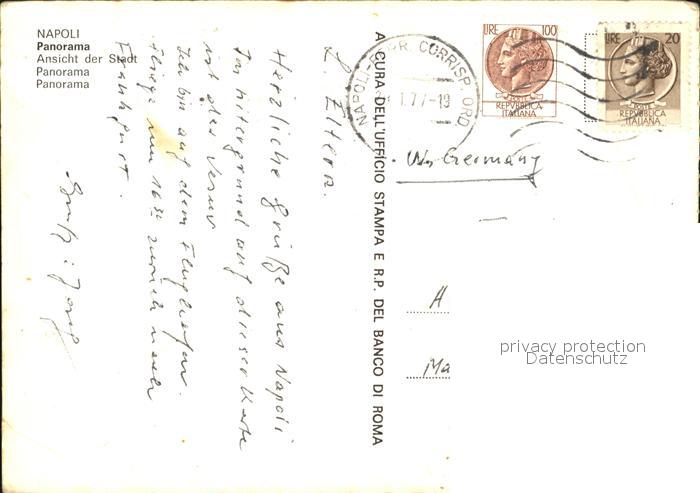 NAPOLI
Panorama
Ansicht der Stadt
Panorama
Panorama
L. Eltern.
Herzliche Grüße aus Napoli
Im Hintergrund auf dieser Karte
ist der Vesuv
Ich bin auf dem Flughafen.
Fliege um 16 zurück nach
Frankfurt.
A CURA DELL'UFFICIO STAMPA E R.P. DEL BANCO DI ROMA
NAPOLI CORRISP. ORD
1.77-19
LIRE 100
REPVBBLICA
ITALIANA
LIRE 20
REPVBBLICA
ITALIANA
W. Germany
A
Ma
privacy protection
Datenschutz